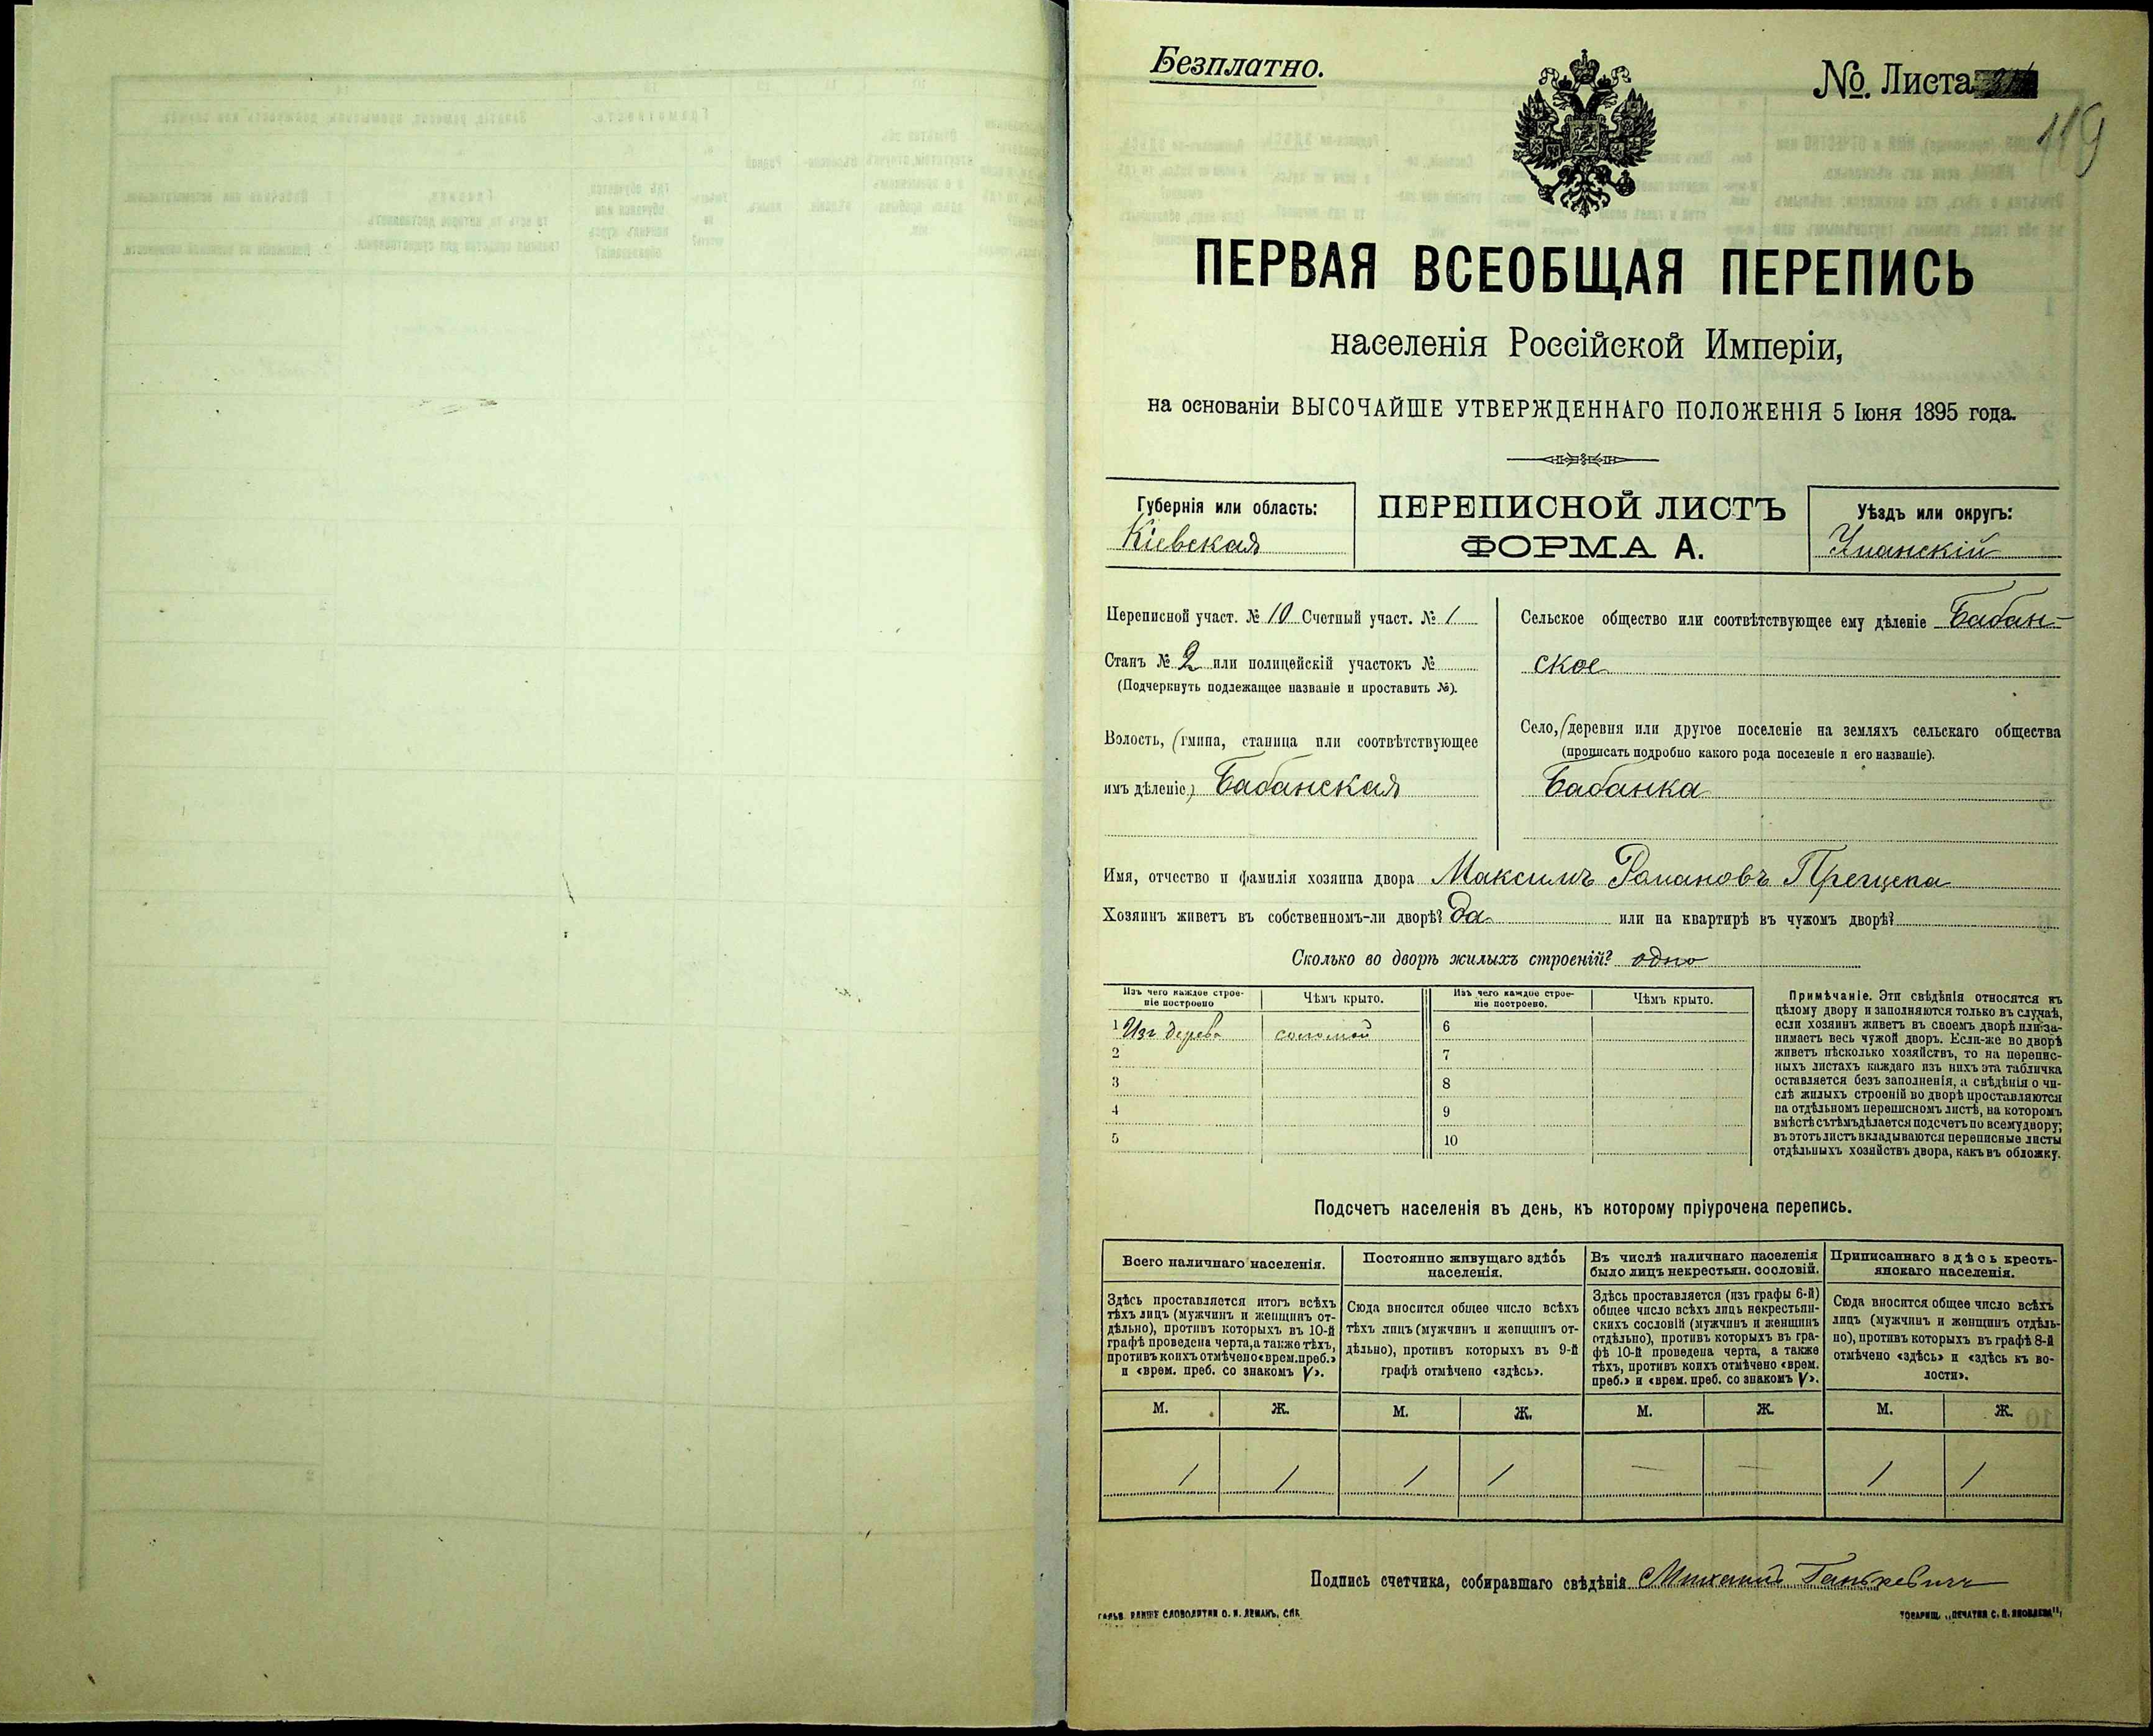 Безплатно.
№ Листа
119
ПЕРВАЯ ВСЕОБЩАЯ ПЕРЕПИСЬ
населенія Россійской Имперіи,
на основаніи ВЫСОЧАЙШЕ УТВЕРЖДЕННАГО ПОЛОЖЕНІЯ 5 Іюня 1895 года.
Губернія или область:
Кіевская
ПЕРЕПИСНОЙ ЛИСТЪ
ФОРМА А.
Уѣздъ или округъ:
Уманскій
Переписной участ. № 10 Счетный участ. № 1
Станъ № 2 или полицейскій участокъ №
(Подчеркнуть подлежащее названіе и проставить №).
Волость, (гмина, станица или соотвѣтствующее
имъ дѣленіе) Бабанская
Сельское общество или соотвѣтствующее ему дѣленіе Бабан-
ское
Село, (деревня или другое поселеніе на земляхъ сельскаго общества
(прописать подробно какого рода поселеніе и его названіе).
Бабанка
Имя, отчество и фамилія хозяина двора Максимъ Романовъ
Хозяинъ живетъ въ собственномъ-ли дворѣ? Да или на квартирѣ въ чужомъ дворѣ?
Сколько во дворѣ жилыхъ строеній? одно
Изъ чего каждое строе-
ніе построено
Чѣмъ крыто.
Изъ чего каждое строе-
ніе построено.
Чѣмъ крыто.
1 Изъ дерева соломой 6
2 7
3 8
4 9
5 10
Примѣчаніе. Эти свѣдѣнія относятся къ
цѣлому двору и заполняются только въ случаѣ,
если хозяинъ живетъ въ своемъ дворѣ или за-
нимаетъ весь чужой дворъ. Если-же во дворѣ
живетъ нѣсколько хозяйствъ, то на перепис-
ныхъ листахъ каждаго изъ нихъ эта табличка
оставляется безъ заполненія, а свѣдѣнія о чи-
слѣ жилыхъ строеній во дворѣ проставляются
на отдѣльномъ переписномъ листѣ, на которомъ
вмѣстѣ съ тѣмъ дѣлается подсчетъ по всему двору;
въ этотъ листъ вкладываются переписные листы
отдѣльныхъ хозяйствъ двора, какъ въ обложку.
Подсчетъ населенія въ день, къ которому пріурочена перепись.
Всего наличнаго населенія.
Здѣсь проставляется итогъ всѣхъ
тѣхъ лицъ (мужчинъ и женщинъ от-
дѣльно), противъ которыхъ въ 10-й
графѣ проведена черта, а также тѣхъ,
противъ коихъ отмѣчено «врем. преб.»
и «врем. преб. со знакомъ V».
Постоянно живущаго здѣсь
населенія.
Сюда вносится общее число всѣхъ
тѣхъ лицъ (мужчинъ и женщинъ от-
дѣльно), противъ которыхъ въ 9-й
графѣ отмѣчено «здѣсь».
Въ числѣ наличнаго населенія
было лицъ некрестьян. сословій.
Здѣсь проставляется (изъ графы 6-й)
общее число всѣхъ лицъ некрестьян-
скихъ сословій (мужчинъ и женщинъ
отдѣльно), противъ которыхъ въ гра-
фѣ 10-й проведена черта, а также
тѣхъ, противъ коихъ отмѣчено «врем.
преб.» и «врем. преб. со знакомъ V».
Приписаннаго здѣсь кресть-
янскаго населенія.
Сюда вносится общее число всѣхъ
лицъ (мужчинъ и женщинъ отдѣль-
но), противъ которыхъ въ графѣ 8-й
отмѣчено «здѣсь» и «здѣсь къ во-
лости».
М. Ж. М. Ж. М. Ж. М. Ж.
1 1 1 1 — — 1 1
Подпись счетчика, собиравшаго свѣдѣнія Михаилъ
СЛОВОЛИТНИ О. И. ЛЕМАНЪ, СПБ.
ТОВАРИЩ. „ПЕЧАТНЯ С. П. ЯКОВЛЕВА“